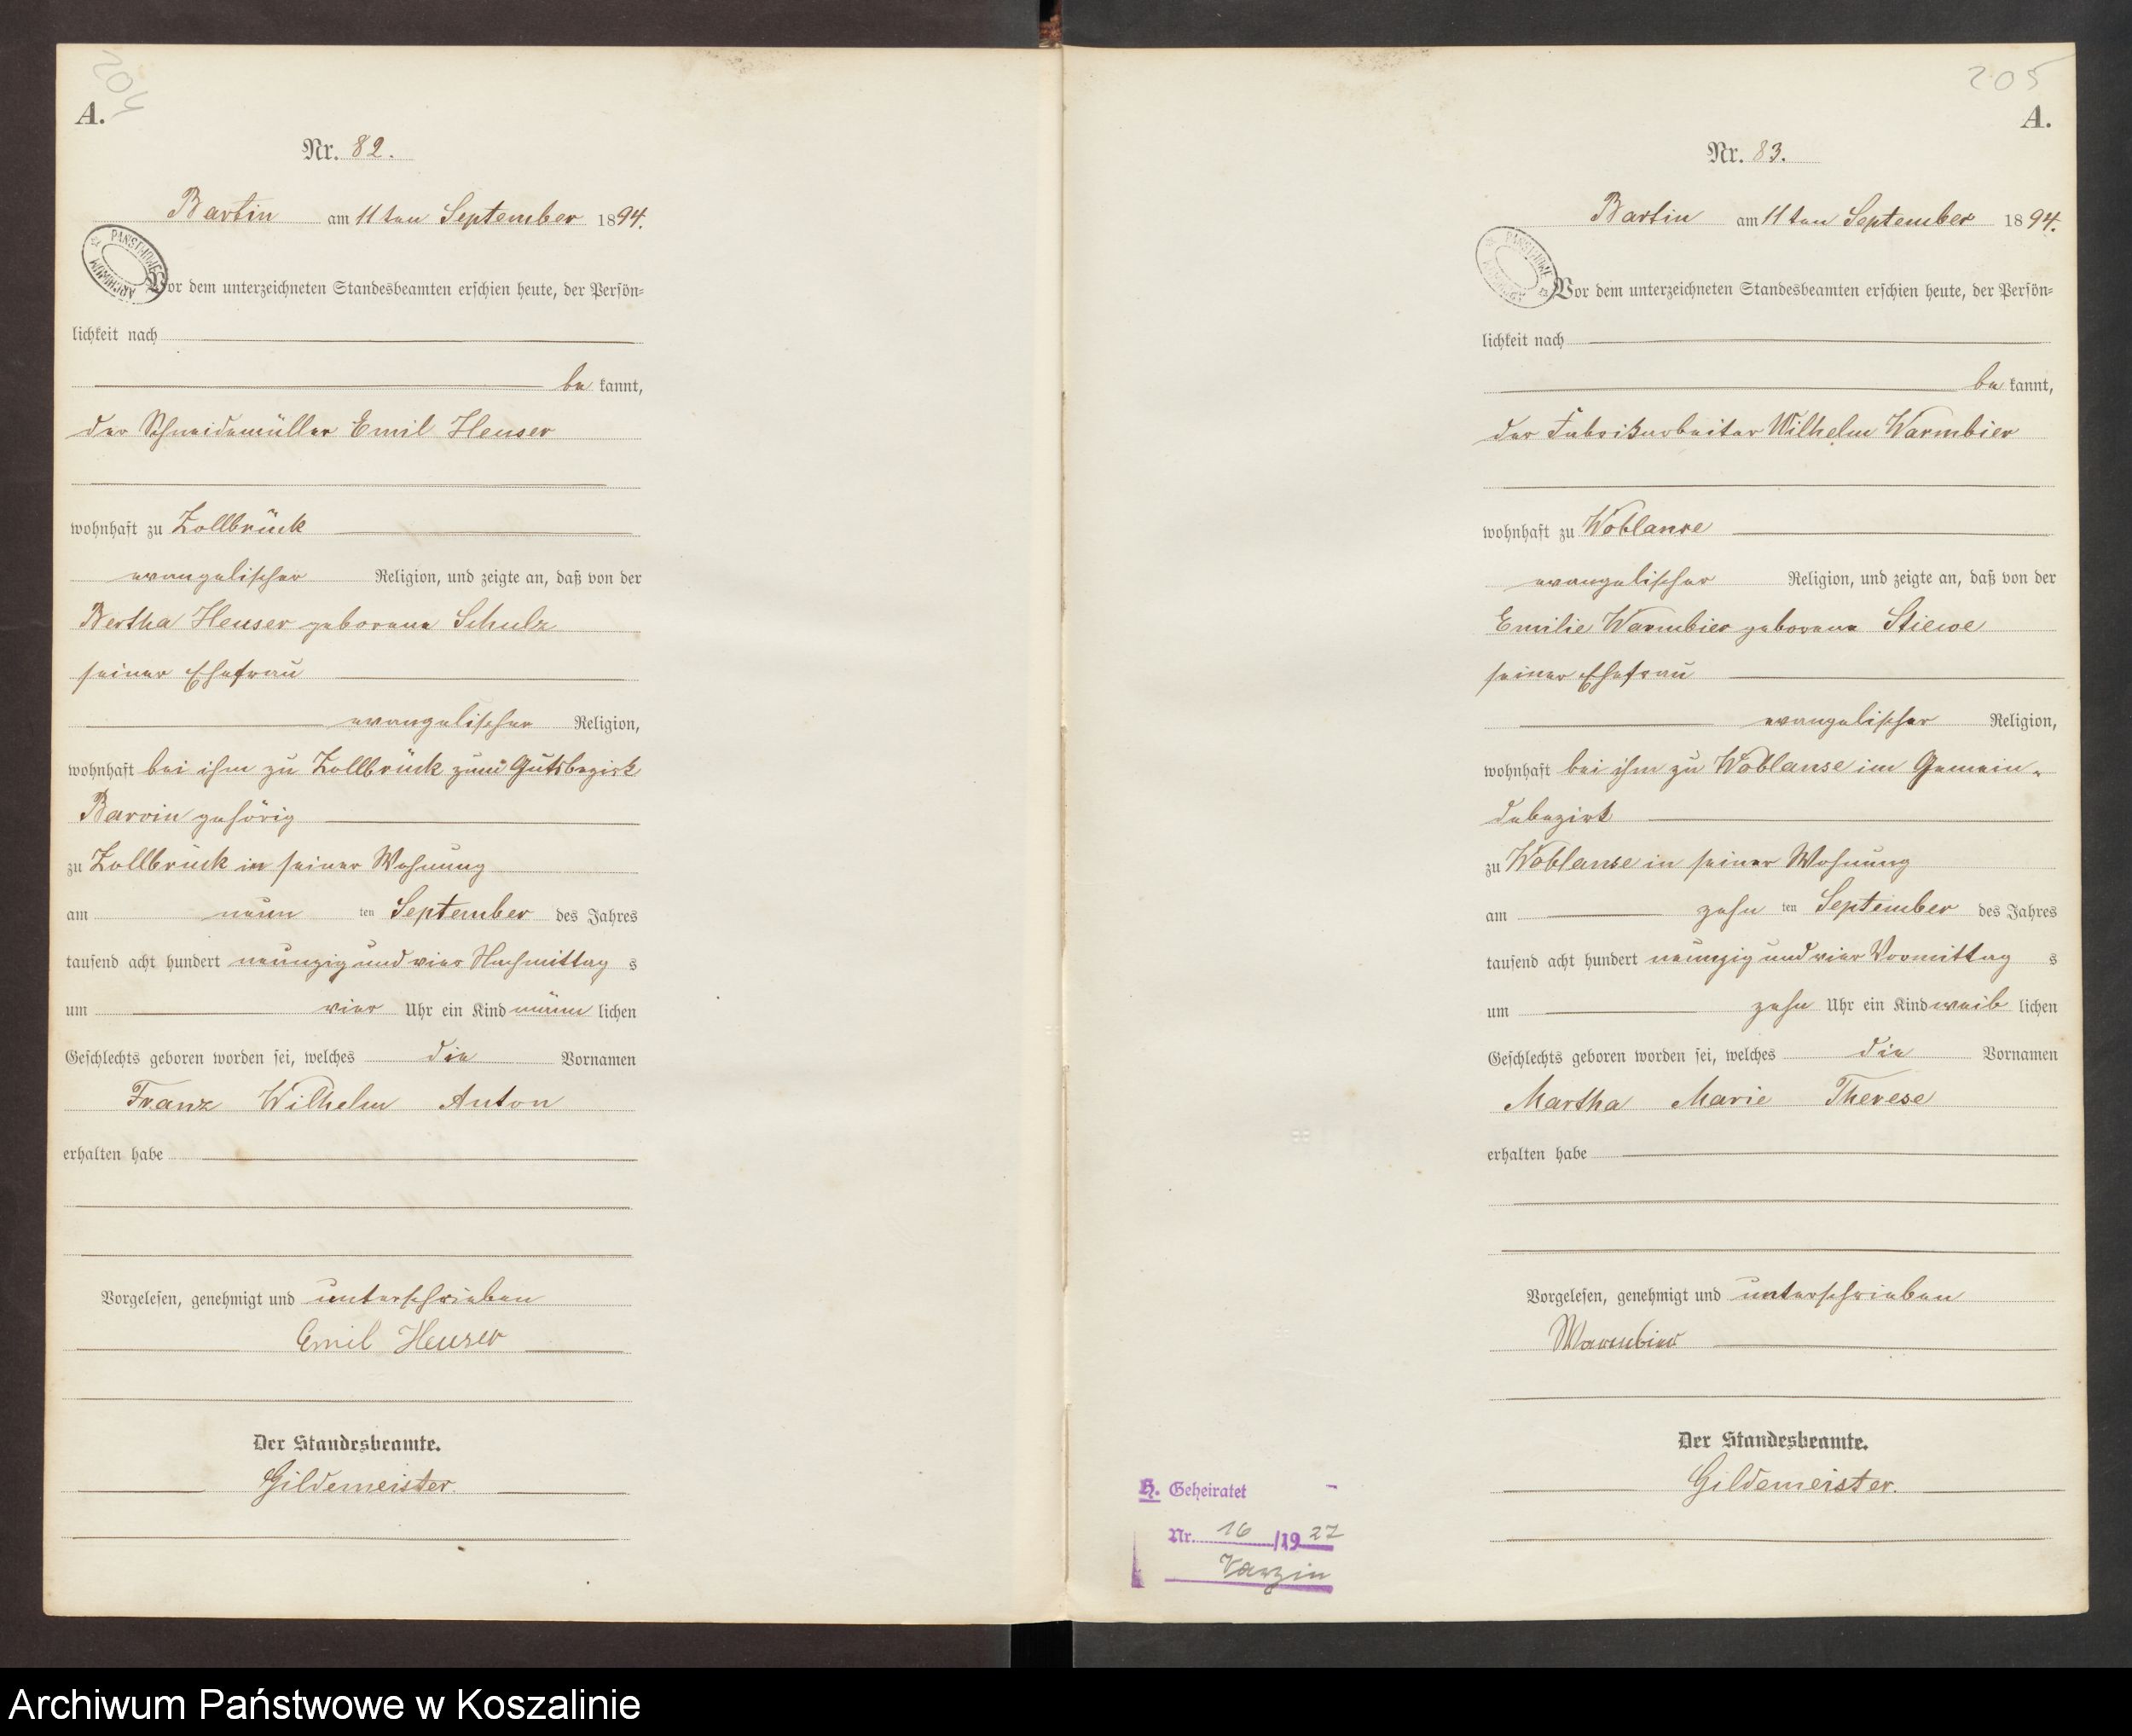 204
A.
Nr. 82.
Bartin am 11ten September 1894.
PAŃSTWOWE ARCHIWUM
Vor dem unterzeichneten Standesbeamten erschien heute, der Persön=
lichkeit nach
be kannt,
der Schneidemüller Emil Heuser
wohnhaft zu Zollbrück
evangelischer Religion, und zeigte an, daß von der
Bertha Heuser geborene Schulz
seiner Ehefrau
evangelischer Religion,
wohnhaft bei ihm zu Zollbrück zum Gutsbezirk
Barvin gehörig
zu Zollbrück in seiner Wohnung
am neun ten September des Jahres
tausend acht hundert neunzig und vier Nachmittag s
um vier Uhr ein Kind männ lichen
Geschlechts geboren worden sei, welches die Vornamen
Franz Wilhelm Anton
erhalten habe
Vorgelesen, genehmigt und unterschrieben
Emil Heuser
Der Standesbeamte.
Gildemeister.
205
A.
Nr. 83.
Bartin am 11ten September 1894.
PAŃSTWOWE ARCHIWUM
Vor dem unterzeichneten Standesbeamten erschien heute, der Persön=
lichkeit nach
be kannt,
der Fabrikarbeiter Wilhelm Warmbier
wohnhaft zu Woblanse
evangelischer Religion, und zeigte an, daß von der
Emilie Warmbier geborene Stiewe
seiner Ehefrau
evangelischer Religion,
wohnhaft bei ihm zu Woblanse im Gemein-
debezirk
zu Woblanse in seiner Wohnung
am zehn ten September des Jahres
tausend acht hundert neunzig und vier Vormittag s
um zehn Uhr ein Kind weib lichen
Geschlechts geboren worden sei, welches die Vornamen
Martha Marie Therese
erhalten habe
Vorgelesen, genehmigt und unterschrieben
Warmbier
Der Standesbeamte.
Gildemeister.
H. Geheiratet
Nr. 16 /19 27
Varzin
Archiwum Państwowe w Koszalinie